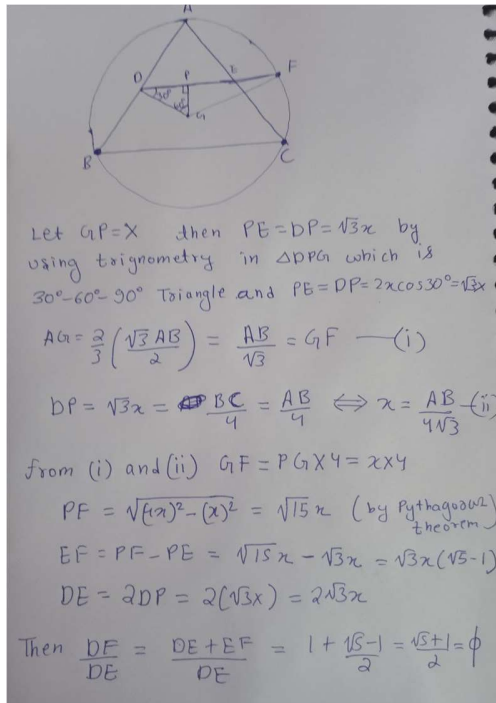 A
D
P
E
F
30°
60°
G
B
C
Let GP = X then PE = DP = √3x by
using trignometry in △DPG which is
30°-60°-90° Triangle and PE = DP = 2xcos30° = √3x
AG = 2/3 (√3 AB/2) = AB/√3 = GF —(i)
DP = √3x = BC/4 = AB/4 ⟺ x = AB/4√3 —(ii)
from (i) and (ii) GF = PG×4 = x×4
PF = √(4x)²-(x)² = √15 x (by Pythagorus
theorem)
EF = PF - PE = √15x - √3x = √3x(√5-1)
DE = 2DP = 2(√3x) = 2√3x
Then DF/DE = DE+EF/DE = 1 + √5-1/2 = √5+1/2 = ϕ